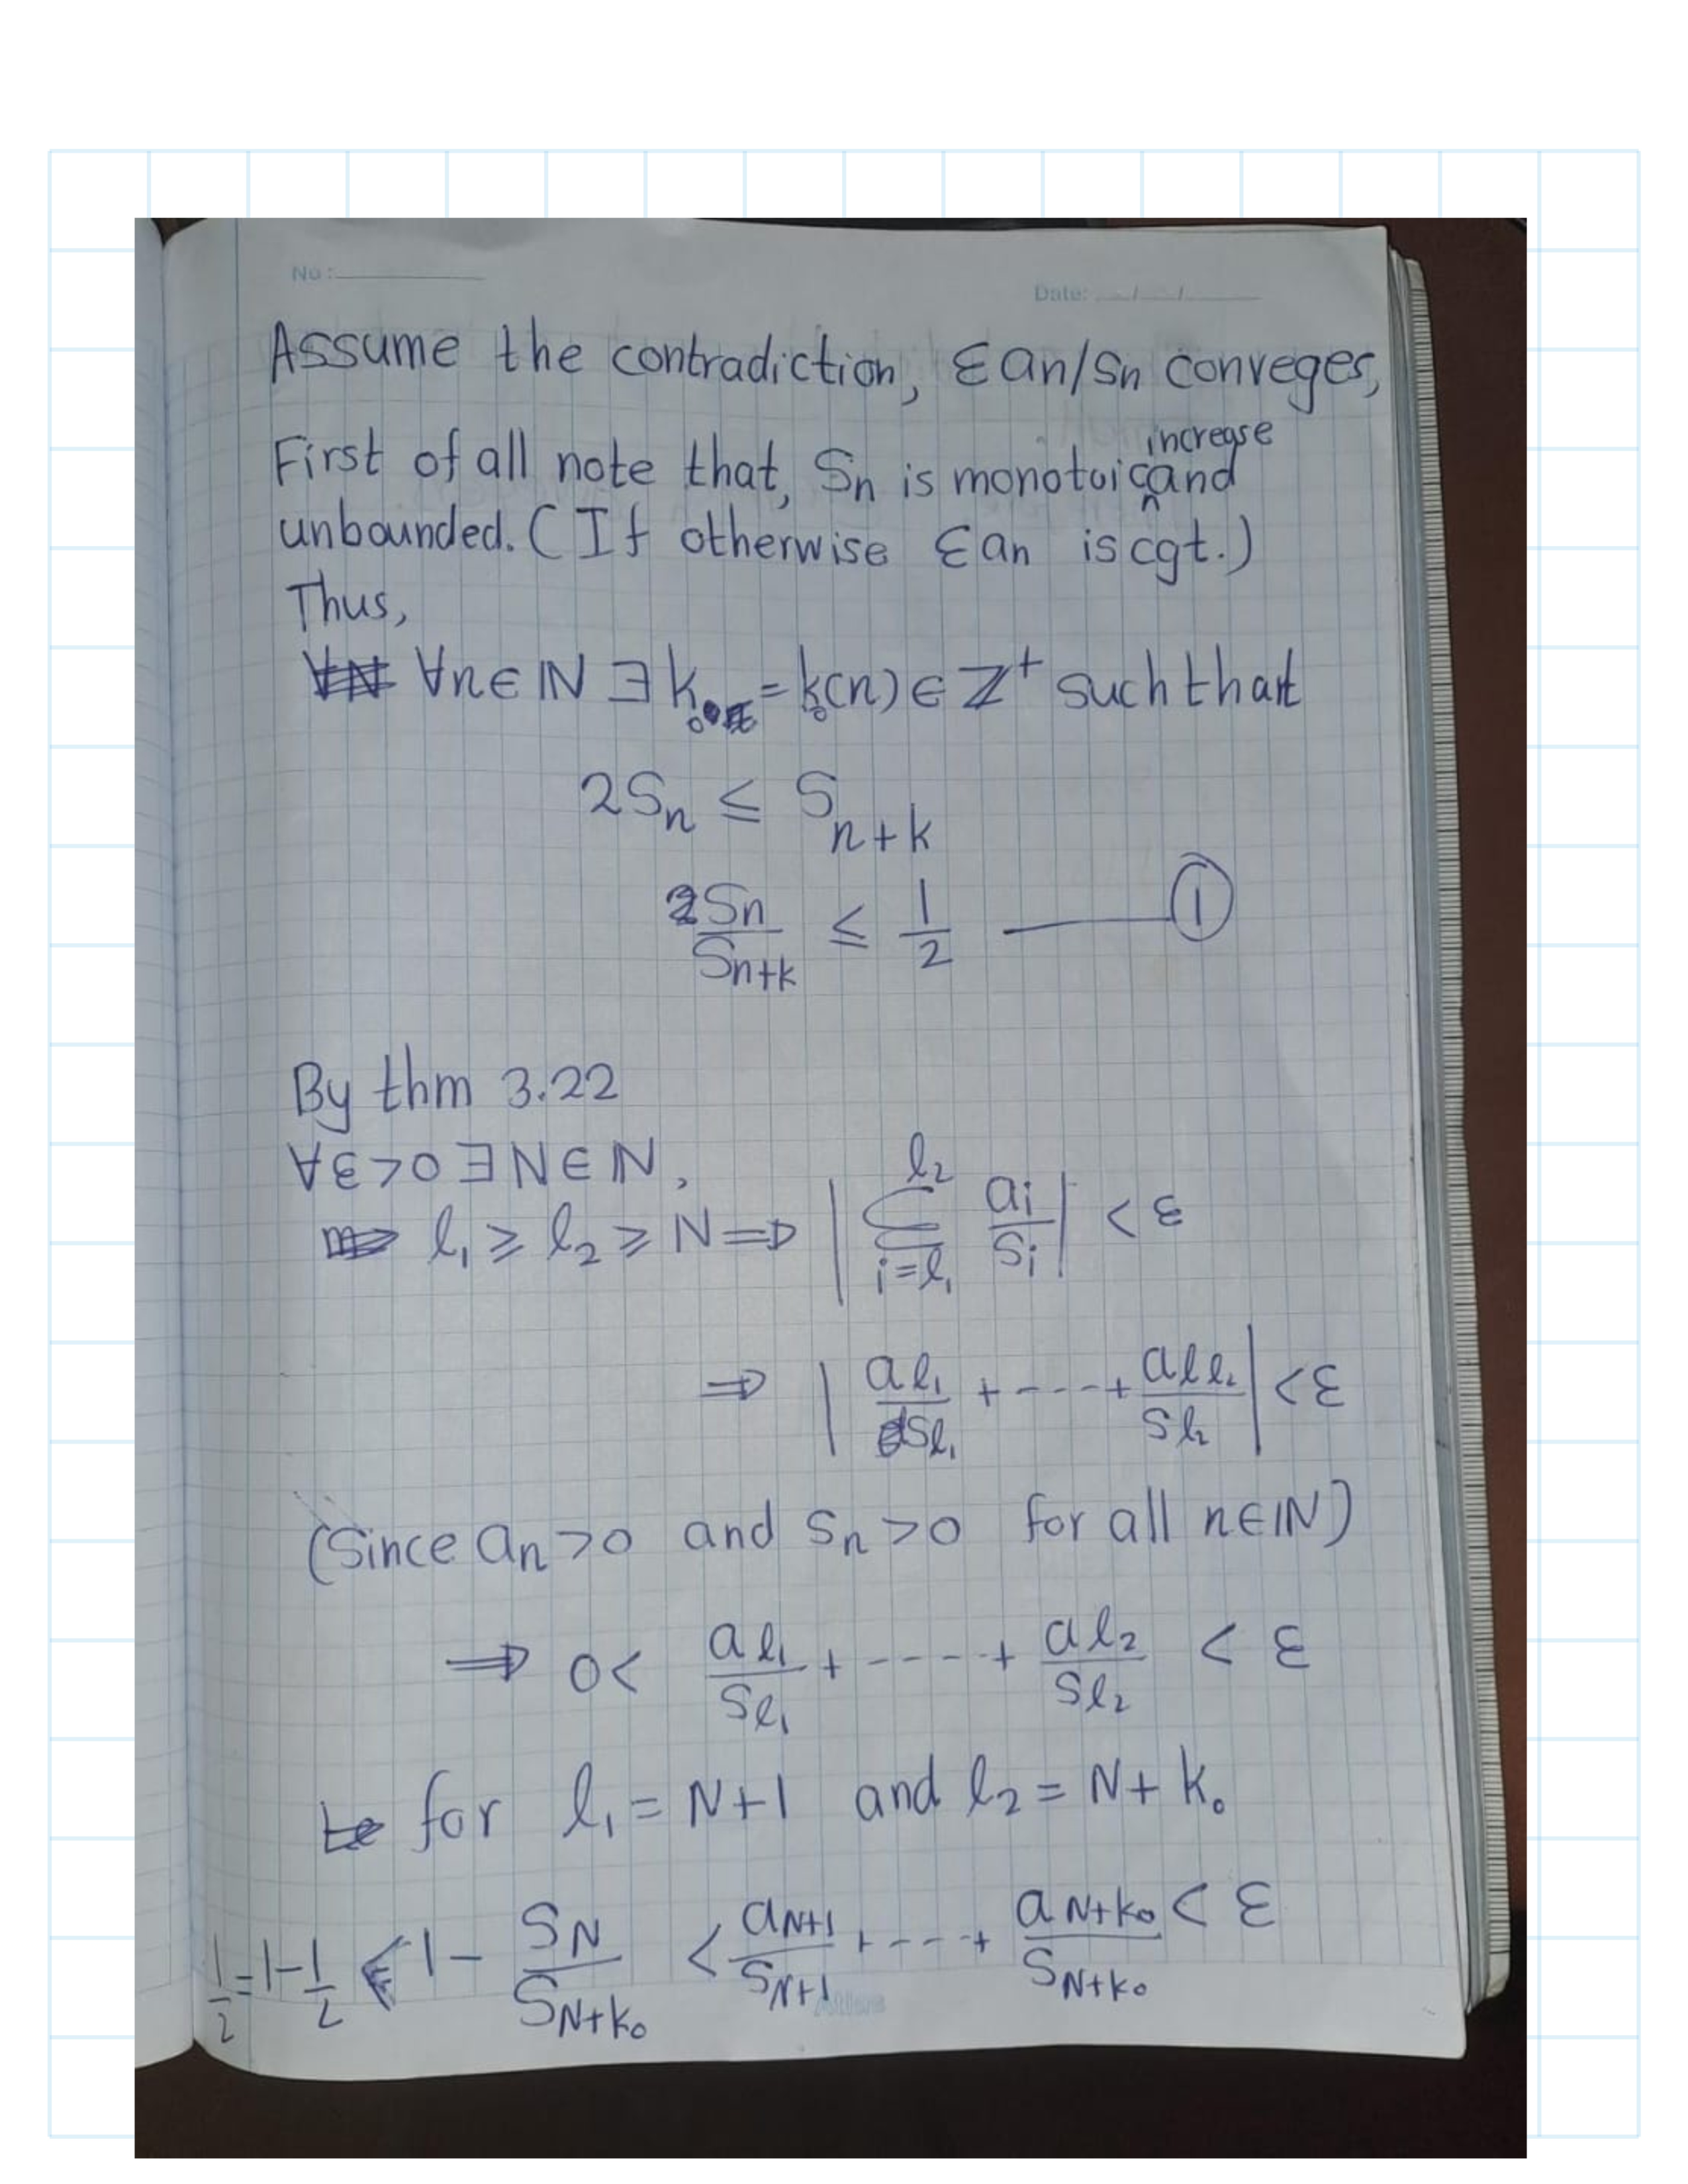 No:
Date:
Assume the contradiction, Σ an/Sn conveges,
First of all note that, Sn is monotoic increase and
unbounded. (If otherwise Σ an is cgt.)
Thus,
∀n ∈ ℕ ∃ k₀ = k₀(n) ∈ ℤ⁺ such that
2Sn ≤ S_{n+k}
Sn/S_{n+k} ≤ 1/2 —— ①
By thm 3.22
∀ε>0 ∃N∈ℕ,
l₁ ≥ l₂ ≥ N ⇒ |Σ_{i=l₁}^{l₂} a_i/S_i| < ε
⇒ |a_{l₁}/S_{l₁} + ---- + a_{l l₂}/S_{l₂}| < ε
(Since an > 0 and Sn > 0 for all n∈ℕ)
⇒ 0 < a_{l₁}/S_{l₁} + ---- + a_{l₂}/S_{l₂} < ε
for l₁ = N+1 and l₂ = N+k₀
1/2 = 1 - 1/2 ≤ 1 - S_N/S_{N+k₀} < a_{N+1}/S_{N+1} + ---- + a_{N+k₀}/S_{N+k₀} < ε